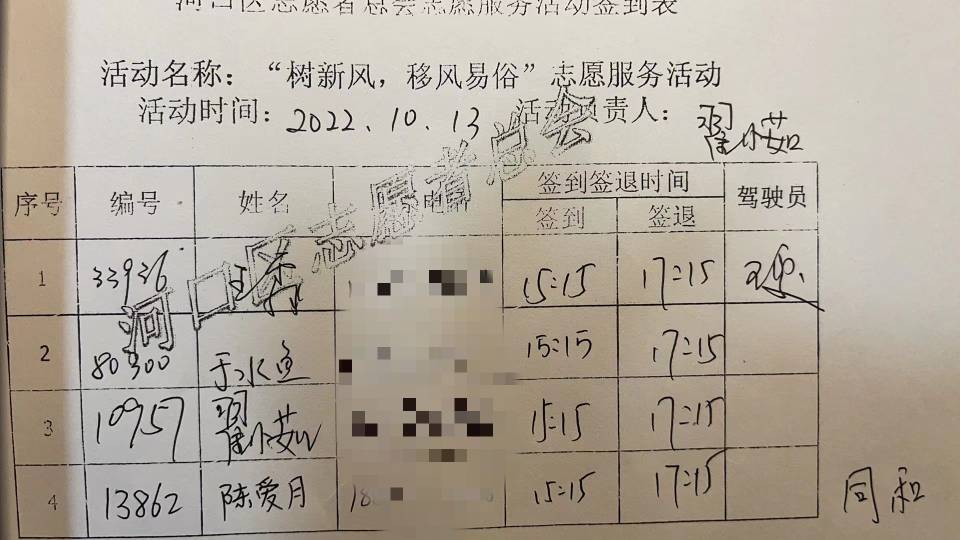 河口区志愿者总会志愿服务活动签到表
活动名称：“树新风，移风易俗”志愿服务活动
活动时间：2022.10.13 活动负责人：翟小茹
序号 编号 姓名 电话 签到签退时间 驾驶员
签到 签退
1 33936 王秀 15:15 17:15
2 80300 于水鱼 15:15 17:15
3 10957 翟小茹 15:15 17:15
4 13862 陈爱月 15:15 17:15
同和
河口区志愿者总会